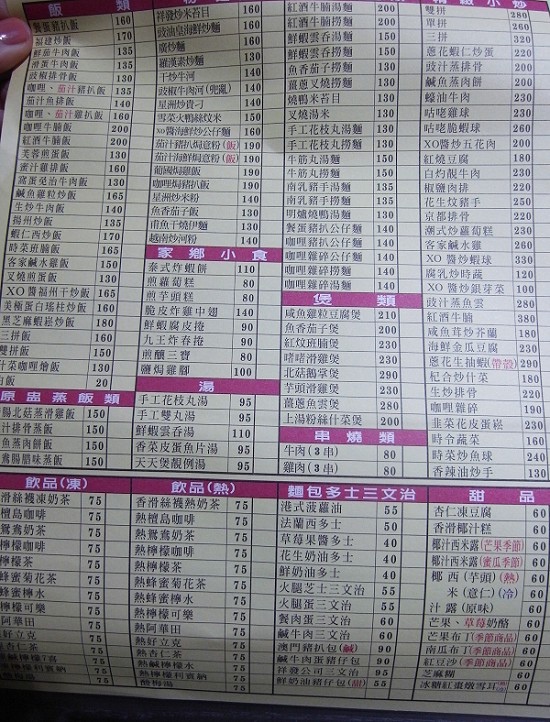 飯 類
餐蛋豬扒飯 160
福建炒飯 170
鮮茄牛肉飯 135
滑蛋牛肉飯 135
豉椒排骨飯 130
咖哩、茄汁豬扒飯 165
茄汁魚排飯 140
咖哩、茄汁雞扒飯 160
咖哩牛腩飯 200
紅酒牛腩飯 200
芙蓉煎蛋飯 130
蜜汁雞排飯 160
窩蛋免治牛肉飯 160
鹹魚雞粒炒飯 165
生炒牛肉飯 130
揚州炒飯 135
蝦仁西炒飯 170
時菜班腩飯 165
客家鹹水雞飯 150
叉燒煎蛋飯 130
XO醬福州干炒飯 165
美極蛋白瑤柱炒飯 160
黑芝麻蝦崧炒飯 180
三拼飯 160
雙拼飯 150
什菜咖哩燴飯 130
白飯 20
原盅蒸飯類
臘腸北菇蒸滑雞飯 150
豉汁排骨蒸飯 150
鹹魚蒸肉餅飯 150
鴛鴦腸腊味蒸飯 150
祥發炒米苔目 160
豉油皇海鮮炒麵 160
廣炒麵 160
羅漢素炒麵 130
干炒牛河 130
豉椒牛肉河(兜亂) 140
星洲炒貴刁 140
雪菜火鴨絲炆米 150
XO醬海鮮炒公仔麵 160
茄汁豬扒焗意粉(飯) 190
茄汁海鮮焗意粉(飯) 190
葡國焗雞飯 190
咖哩焗豬扒飯 190
星洲炒米粉 140
魚香茄子飯 130
甫魚干燒伊麵 130
越南炒河粉 140
家鄉小食
泰式炸蝦餅 110
煎蘿蔔糕 80
煎芋頭糕 80
脆皮炸雞中翅 140
鮮蝦腐皮捲 90
九王炸春捲 90
煎釀三寶 80
鹽焗雞腳 100
湯
手工花枝丸湯 95
手工雙丸湯 95
鮮蝦雲吞湯 110
香菜皮蛋魚片湯 95
天天煲靚例湯 95
紅酒牛腩湯麵 200
紅酒牛腩撈麵 200
鮮蝦雲吞湯麵 130
鮮蝦雲吞撈麵 130
魚香茄子撈麵 130
薑蔥叉燒撈麵 130
燒鴨米苔目 130
叉燒湯米 130
手工花枝丸湯麵 130
手工花枝丸撈麵 130
牛筋丸湯麵 130
牛筋丸撈麵 130
南乳豬手湯麵 130
南乳豬手撈麵 130
明爐燒鴨湯麵 130
餐蛋豬扒公仔麵 130
咖哩豬扒公仔麵 140
咖哩雜碎公仔麵 140
咖哩雜碎撈麵 140
咖哩雜碎湯麵 140
煲 類
咸魚雞粒豆腐煲 210
魚香茄子煲 200
紅炆班腩煲 230
啫啫滑雞煲 230
北菇鵝掌煲 230
芋頭滑雞煲 230
薑蔥魚雲煲 280
上湯粉絲什菜煲 200
串燒類
牛肉(3串) 80
雞肉(3串) 80
雙拼 280
單拼 260
三拼 320
蔥花蝦仁炒蛋 220
豉汁蒸排骨 200
鹹魚蒸肉餅 200
蠔油牛肉 230
咕咾雞球 230
咕咾脆蝦球 260
XO醬炒五花肉 200
紅燒豆腐 180
白灼靚牛肉 230
椒鹽肉排 210
花生炆豬手 250
京都排骨 220
潮式炒蘿蔔糕 230
客家鹹水雞 260
XO醬炒蝦球 330
腐乳炒時蔬 120
XO醬炒銀芽菜 100
豉汁蒸魚雲 280
紅酒牛腩 380
咸魚茸炒芥蘭 180
海鮮金瓜豆腐 220
蔥花生抽蝦(帶殼) 190
杞合炒什菜 180
生炒排骨 200
咖哩雜碎 190
韭菜花皮蛋崧 230
時令蔬菜 160
時菜炒魚球 240
香辣油炒手 130
飲品(凍)
香滑絲襪凍奶茶 75
凍檀島咖啡 75
凍鴛鴦奶茶 75
凍檸檬咖啡 75
凍檸檬茶 75
凍蜂蜜菊花茶 75
凍蜂蜜檸水 75
凍檸檬可樂 75
凍阿華田 75
凍好立克 75
凍杏仁茶 75
凍鹹檸檬7喜 75
凍檸檬利賓納 75
飲品(熱)
香滑絲襪熱奶茶 75
熱檀島咖啡 75
熱鴛鴦奶茶 75
熱檸檬咖啡 75
熱檸檬茶 75
熱蜂蜜菊花茶 75
熱蜂蜜檸水 75
熱檸檬可樂 75
熱阿華田 75
熱好立克 75
熱杏仁茶 75
熱鹹檸檬水 75
熱檸檬利賓納 75
酸梅湯 75
麵包多士三文治
港式菠蘿油 55
法蘭西多士 50
草莓果醬多士 40
花生奶油多士 40
鮮奶油多士 40
火腿芝士三文治 55
火腿蛋三文治 55
餐肉蛋三文治 60
鹹牛肉三文治 60
澳門豬扒包(鹹) 90
鹹牛肉蛋豬仔包 60
祥發公司三文治 95
鮮奶油豬仔包(甜) 55
甜 品
杏仁凍豆腐 60
香滑椰汁糕 60
椰汁西米露(芒果季節) 60
椰汁西米露(蜜瓜季節) 60
椰 西(芋頭)(熱) 60
米(意仁)(冷) 60
汁 露(原味) 60
芒果、草莓奶酪 60
芒果布丁(季節商品) 60
南瓜布丁(季節商品) 60
紅豆沙(季節商品) 60
芝麻糊 60
冰糖紅棗燉雪耳 60